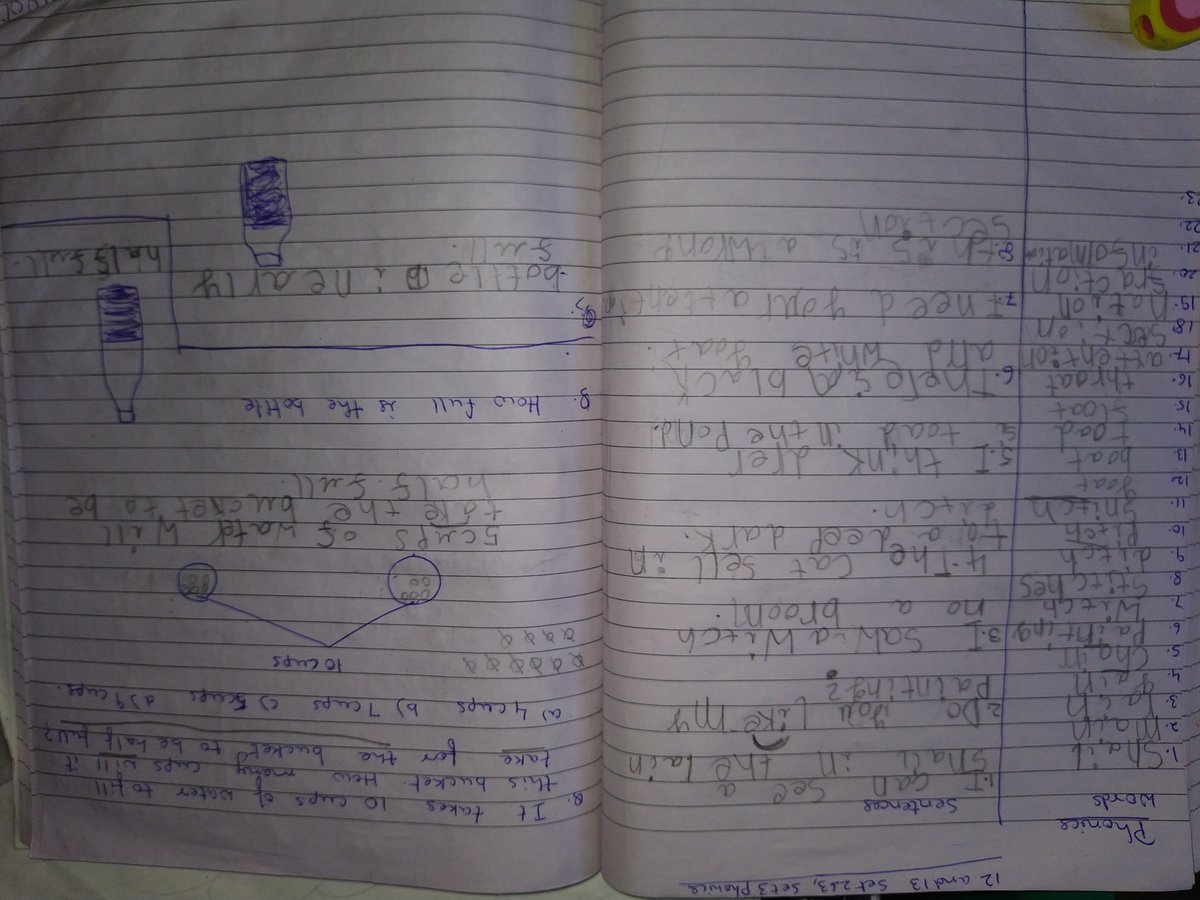 12 and 13 Set 2&3, Set 3 Phonics
Phonics
Words
Sentences
1. Snail
2. main
3. pain
4. gain
5. chair
6. Painting
7. Witch
8. Stitches
9. ditch
10. Pitch
11. Snitch
12. goat
13. boat
14. toad
15. float
16. throat
17. attention
18. Section
19. Nation
20. fraction
21. information
22.
23.
1. I can see a
snail in the rain
2. Do you like my
Painting?
3. I saw a witch
no a broom.
4. The cat fell in
to a deep dark
ditch.
5. I think
a toad in the Pond.
6. a black
and white goat.
7. I need your attention
8. this is a wrong
section
Q. It takes 10 cups of water to fill
this bucket. How many cups will it
take for the bucket to be half full?
a) 4 cups b) 7 cups c) 5 cups d) 9 cups.
10 cups
5 cups of water will
take the bucket to be
half full.
Q. How full is the bottle
half full.
bottle nearly
full.